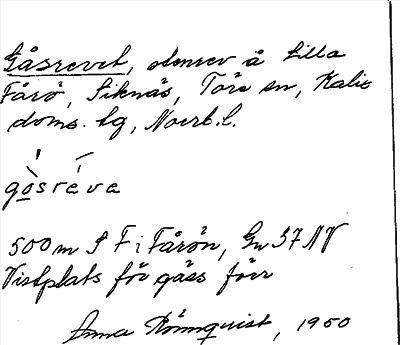 Gåsrevet, stenrev å Lilla
Fårö, Siknäs, Töre sn, Kalix
doms. lg, Norrb. l.
gåsreva
500 m S F i Fårön, Gu 37 NV
Vistplats för gäss förr
Anna Rönnquist, 1950